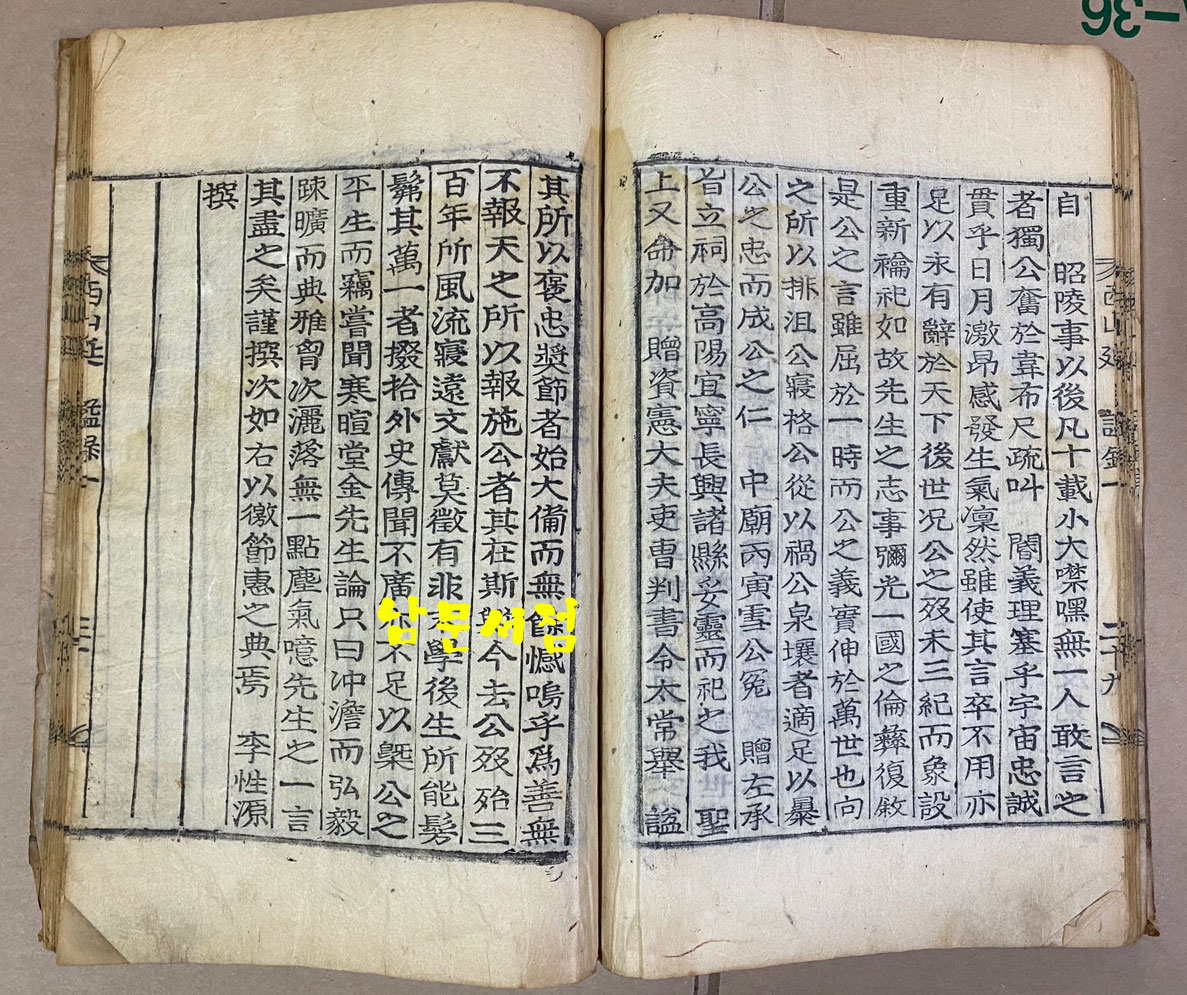 自 昭陵事以後凡十載小大噤嘿無一人敢言之
者獨公奮於韋布尺疏叫 閽義理塞乎宇宙忠誠
貫乎日月激昻感發生氣凜然雖使其言卒不用亦
足以永有辭於天下後世况公之歿未三紀而象設
重新禴祀如故先生之志事彌光一國之倫彝復敘
是公之言雖屈於一時而公之義實伸於萬世也向
之所以排沮公寢格公從以禍公泉壤者適足以暴
公之忠而成公之仁 中廟丙寅雪公寃 贈左承
旨立祠於高陽宜寧長興諸縣妥靈而祀之我 聖
上又命加 贈資憲大夫吏曹判書令太常擧 謚
其所以褒忠奬節者始大備而無餘憾嗚乎爲善無
不報天之所以報施公者其在斯歟今去公歿殆三
百年所風流寢遠文獻莫徵有非 學後生所能髣
髴其萬一者掇拾外史傳聞不廣 不足以槩公之
平生而竊嘗聞寒暄堂金先生論只曰冲澹而弘毅
踈曠而典雅胷次灑落無一點塵氣噫先生之一言
其盡之矣謹撰次如右以徼節惠之典焉 李性源
撰
二十九
삼문서점
-36